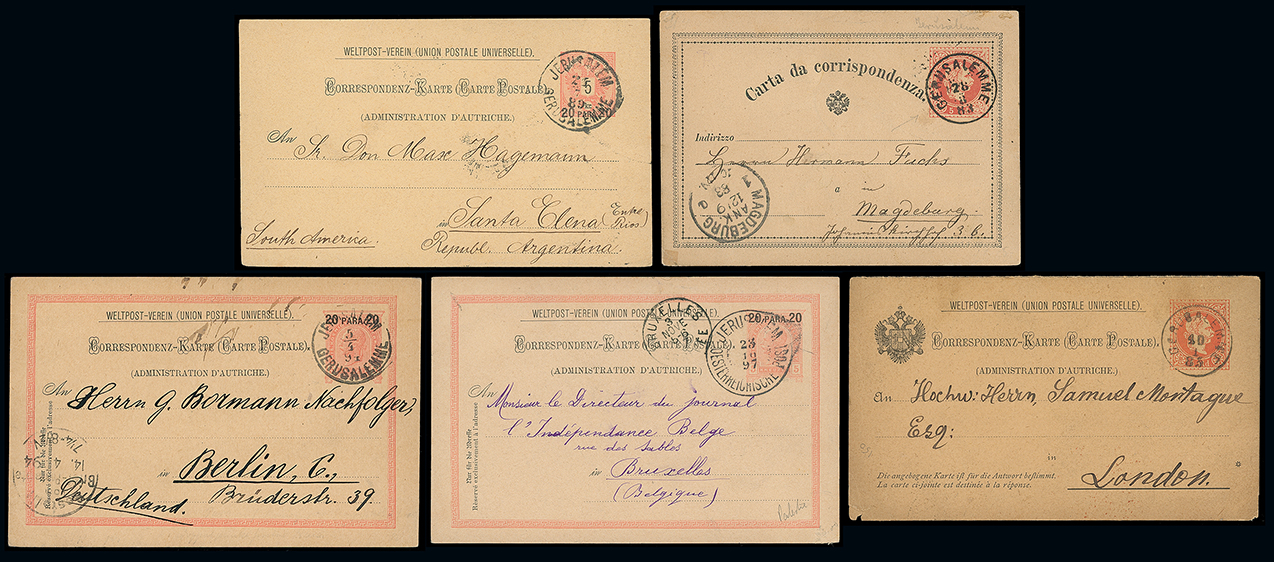 WELTPOST-VEREIN (UNION POSTALE UNIVERSELLE).
CORRESPONDENZ-KARTE (CARTE POSTALE)
(ADMINISTRATION D'AUTRICHE.)
JERUSALEM
5
89
20 PARA
GERUSALEMME
An Sr. Don Max Hagemann
in Santa Elena (Entre Rios)
South America.
Republ. Argentina.
Jerusalem
Carta da corrispondenza.
GERUSALEMME
28
83
Indirizzo
Herrn Hermann Fuchs
a in
Magdeburg
36.
MAGDEBURG
ANK.
12/9
83
WELTPOST-VEREIN (UNION POSTALE UNIVERSELLE).
CORRESPONDENZ-KARTE (CARTE POSTALE).
(ADMINISTRATION D'AUTRICHE.)
20 PARA 20
GERUSALEMME
An Herrn G. Bormann Nachfolger,
in Berlin, C.,
Deutschland. Brüderstr. 39.
Nur für die Adresse
Réservé exclusivement à l'adresse
14. 4. 94
WELTPOST-VEREIN (UNION POSTALE UNIVERSELLE).
CORRESPONDENZ-KARTE (CARTE POSTALE).
(ADMINISTRATION D'AUTRICHE.)
20 PARA. 20
BRUXELLES
JERUSALEM
23
10
97
OESTERREICHISCHE POST
An Monsieur le Directeur du journal
l'Indépendance Belge
rue des Sables
in Bruxelles
(Belgique)
Nur für die Adresse
Réservé exclusivement à l'adresse
WELTPOST-VEREIN (UNION POSTALE UNIVERSELLE).
CORRESPONDENZ-KARTE (CARTE POSTALE.)
(ADMINISTRATION D'AUTRICHE.)
An Hochw: Herrn, Samuel Montague
Esq:
in
London.
Die angebogene Karte ist für die Antwort bestimmt.
La carte ci-jointe est destinée à la réponse.